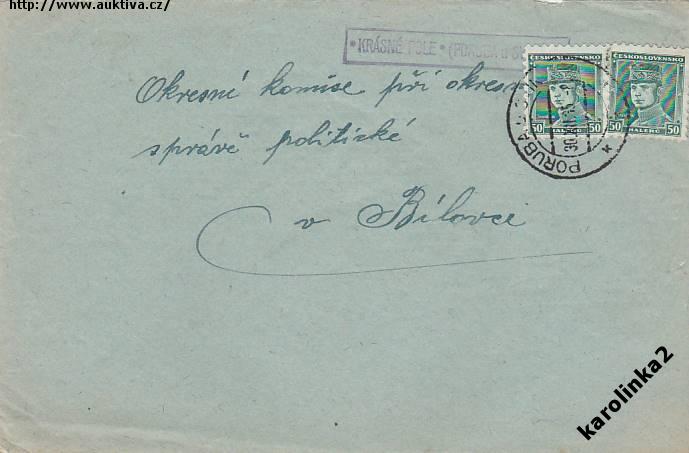 http://www.auktiva.cz/
* KRÁSNÉ POLE * (PORUBA
ČESKOSLOVENSKO ČESKOSLOVENSKO
50 HALÉŘŮ 50 50 HALÉŘŮ 50
PORUBA
Okresní komise při okresní
správě politické
v Bílovci
karolinka2